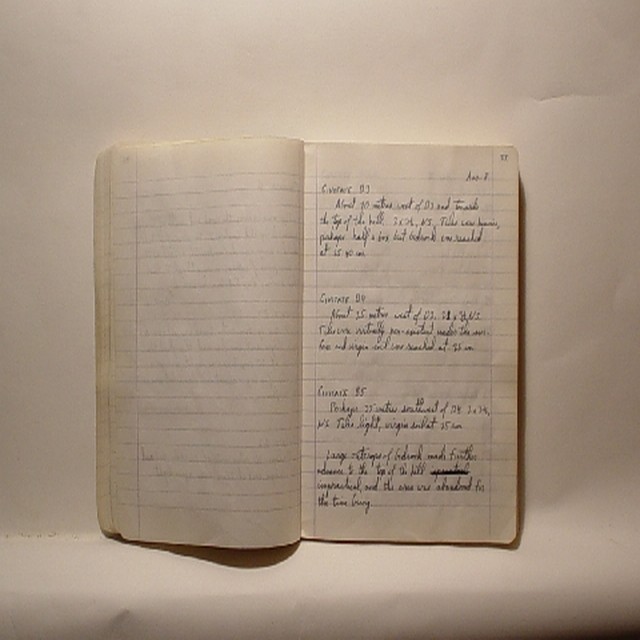 Aug. 8
CIMITASE D3
About 90 metres west of D2 and towards
the top of the hill. 2 x 2½, N.S. Tiles were heavier,
perhaps half a box but bedrock was reached
at 35-40 cm
CIMITASE D4
About 25 metres west of D3. N.S.
Tiles were virtually non-existent under the sur-
face and virgin soil was reached at 25 cm
CIMITASE D5
Perhaps 35 metres southwest of D4 2 x 2½,
N.S. Tiles light, virgin soil at 25 cm
Large outcrops of bedrock made further
advance to the top of the hill
impractical, and the area was abandoned for
the time being